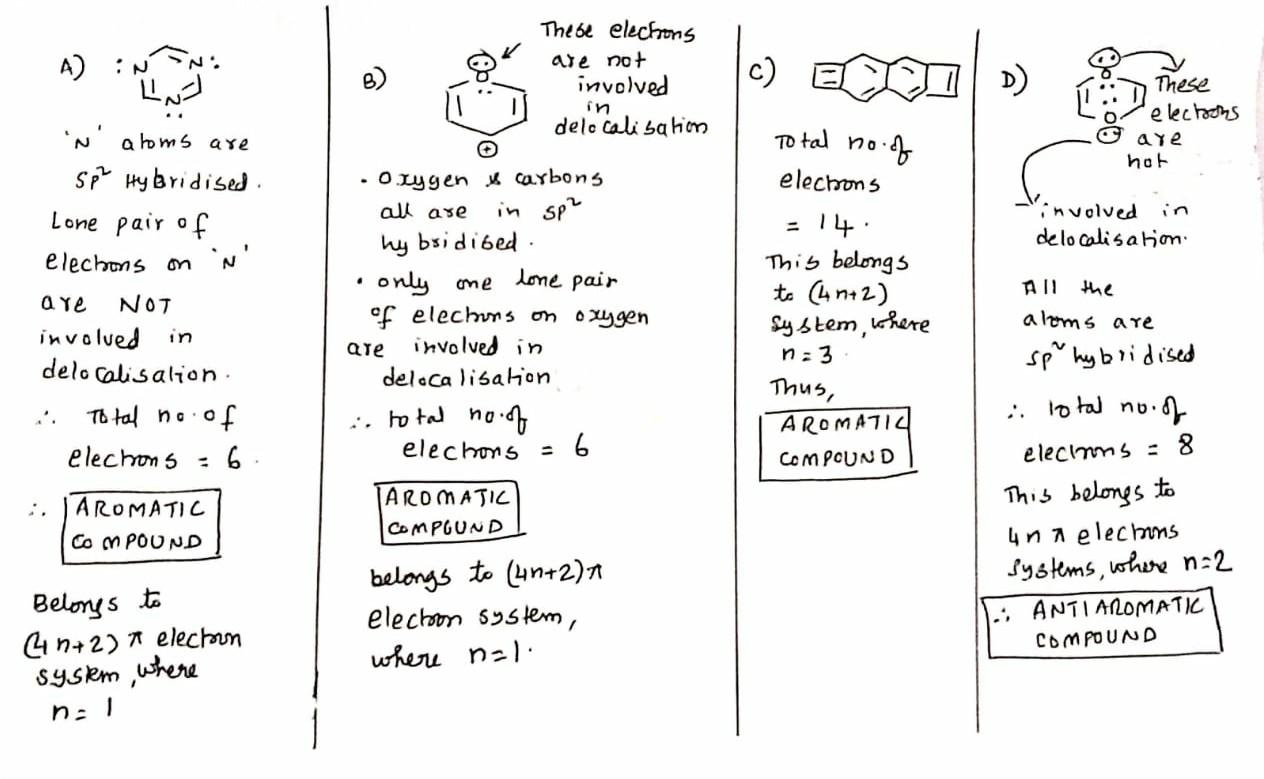 A) :N N: N ..
'N' atoms are
sp² Hybridised.
Lone pair of
electrons on 'N'
are NOT
involved in
delocalisation.
∴ Total no. of
electrons = 6.
∴ AROMATIC
COMPOUND
Belongs to
(4n+2) π electron
system, where
n = 1
B)
These electrons
are not
involved
in
delocalisation
O
⊕
• Oxygen & carbons
all are in sp²
hybridised.
• only one lone pair
of electrons on oxygen
are involved in
delocalisation
∴ total no. of
electrons = 6
AROMATIC
COMPOUND
belongs to (4n+2) π
electron system,
where n=1.
C)
Total no. of
electrons
= 14.
This belongs
to (4n+2)
system, where
n = 3.
Thus,
AROMATIC
COMPOUND
D)
O
O
These
electrons
are
not
involved in
delocalisation.
All the
atoms are
sp² hybridised
∴ total no. of
electrons = 8
This belongs to
4n π electrons
systems, where n=2
∴ ANTIAROMATIC
COMPOUND